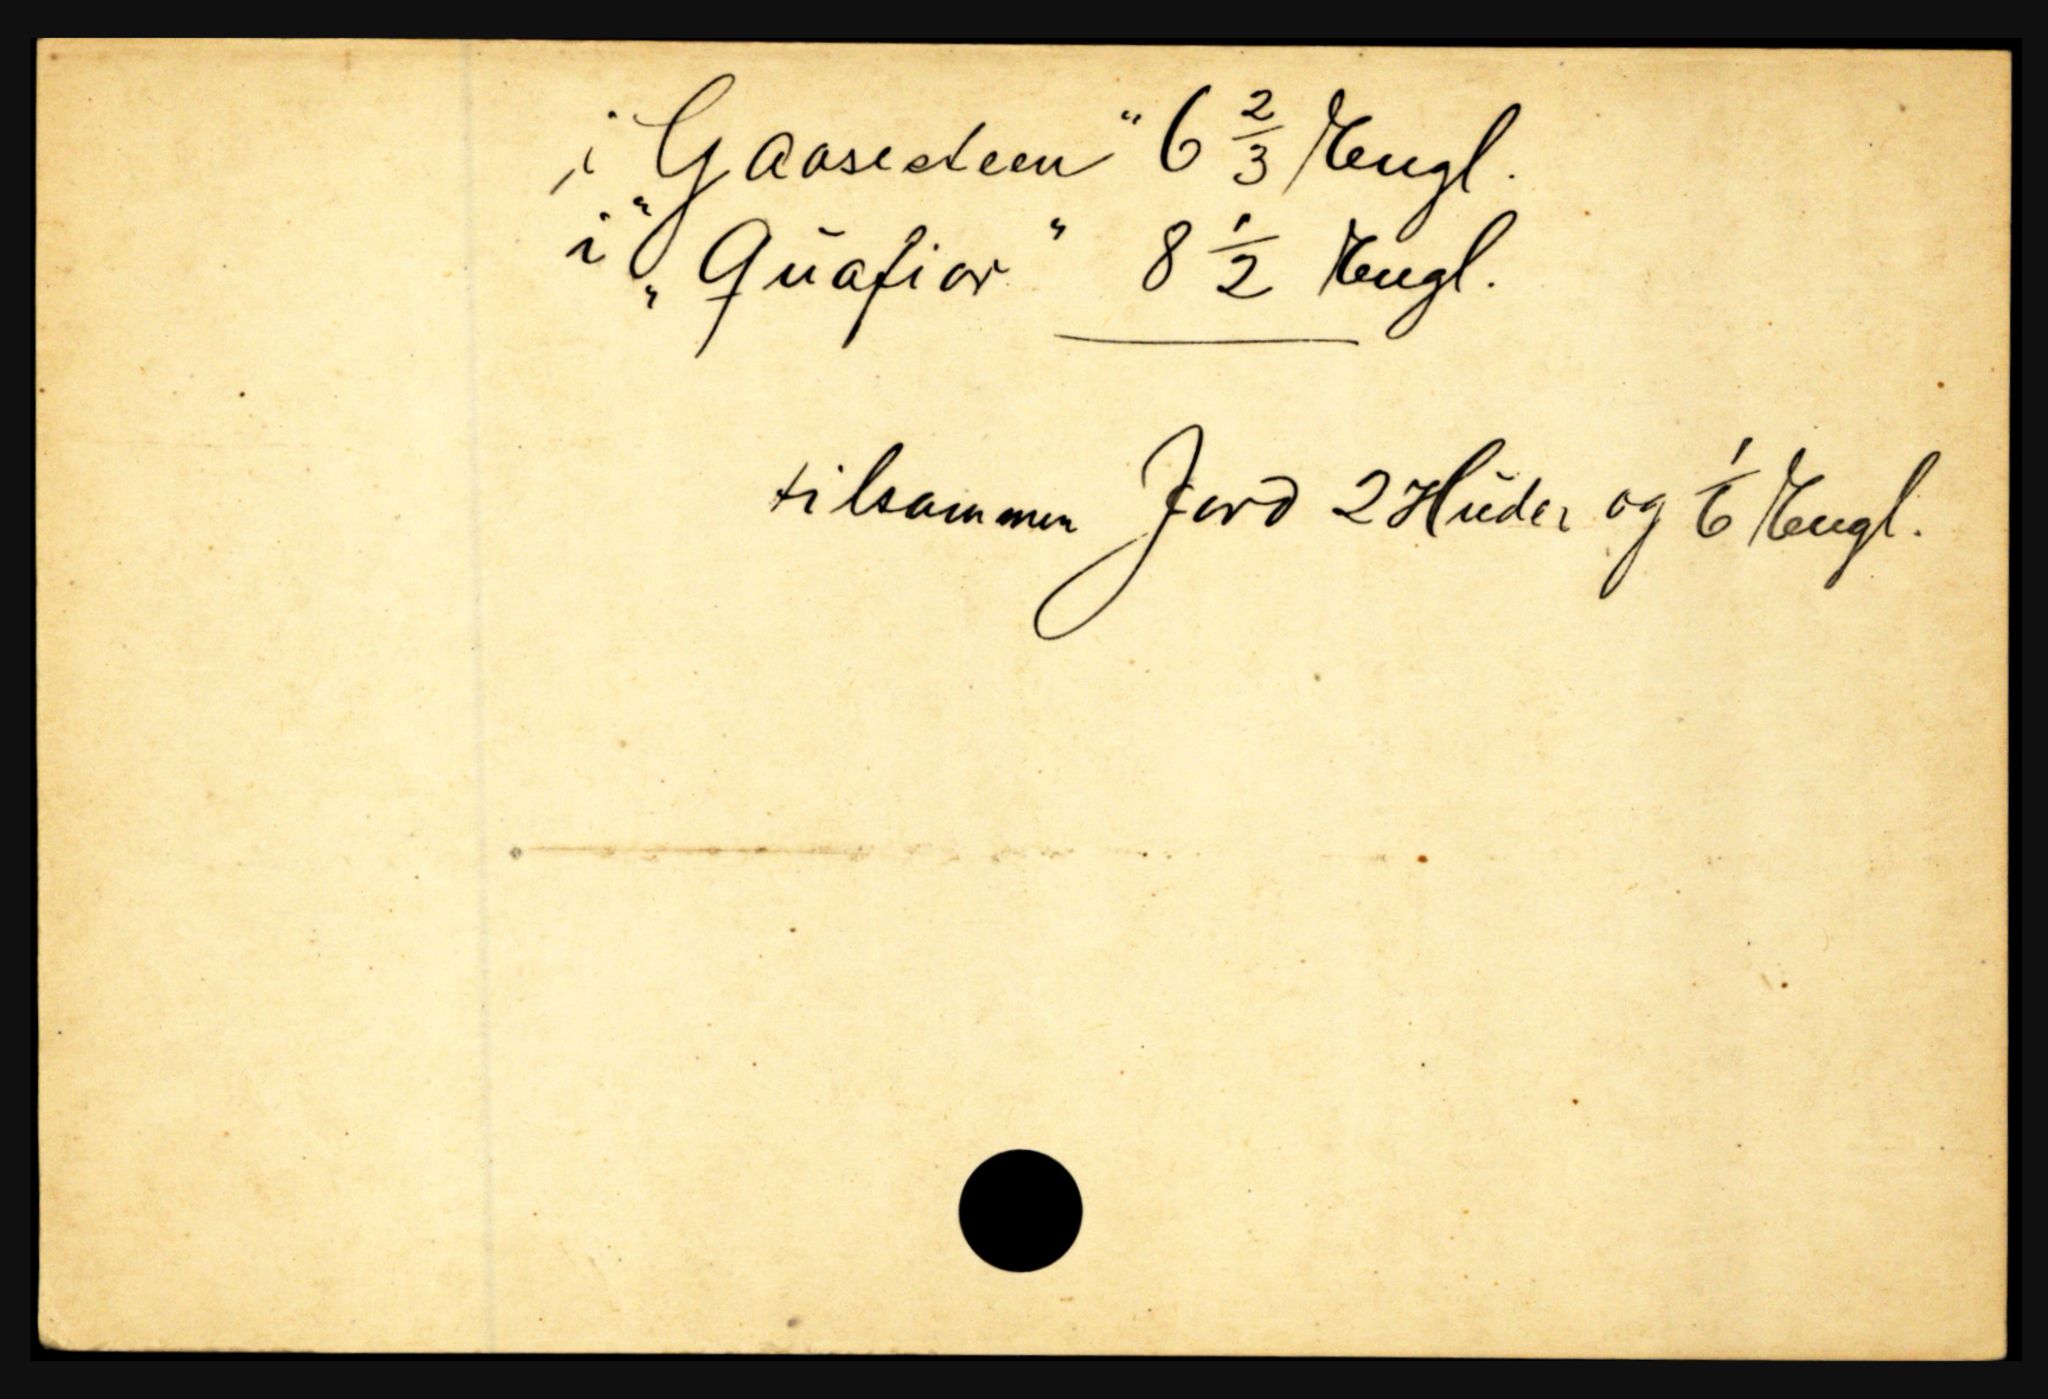 i „Gaasesteen“ 6 2/3 Engl.
i „Quafior“ 8 1/2 Engl.
tilsammen Jord 2 Huder og 1/6 Engl.